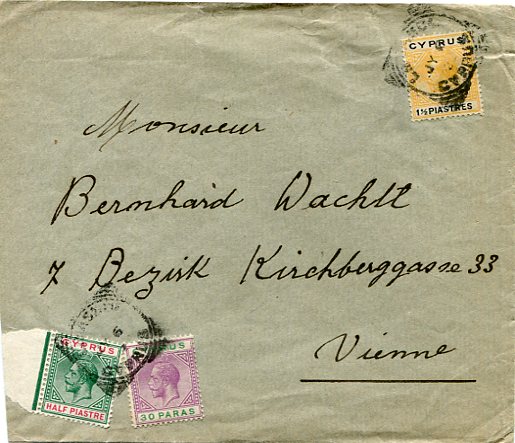 CYPRUS
1½ PIASTRES
Monsieur
Bernhard Wachtl
7 Bezirk Kirchberggasse 33
Vienne
CYPRUS
HALF PIASTRE
CYPRUS
30 PARAS